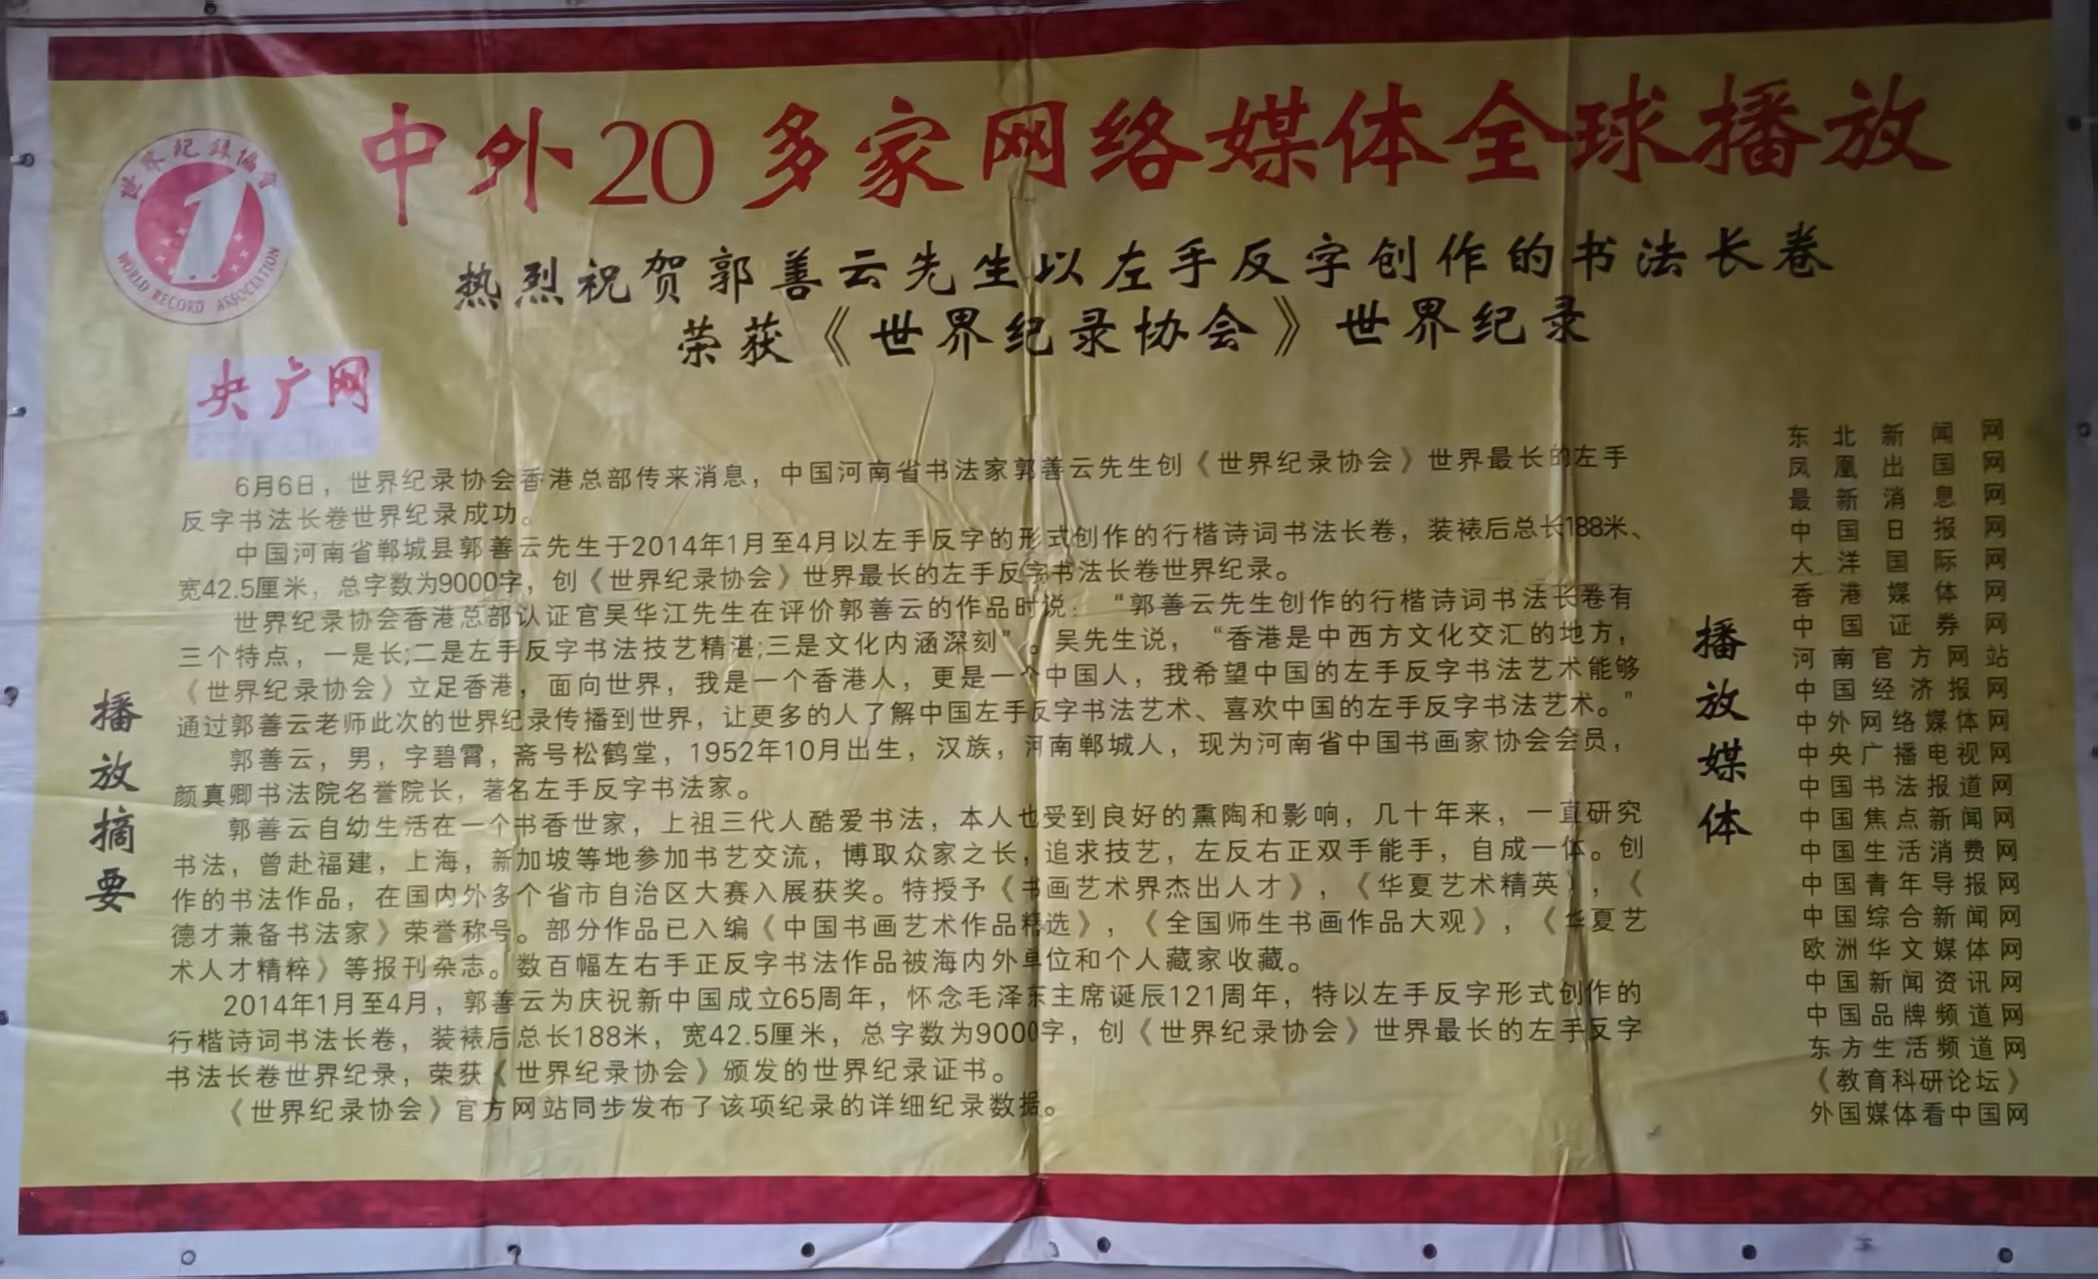 世界纪录协会
WORLD RECORD ASSOCIATION
中外20多家网络媒体全球播放
热烈祝贺郭善云先生以左手反字创作的书法长卷
荣获《世界纪录协会》世界纪录
央广网
播放摘要
6月6日，世界纪录协会香港总部传来消息，中国河南省书法家郭善云先生创《世界纪录协会》世界最长的左手
反字书法长卷世界纪录成功。
中国河南省郸城县郭善云先生于2014年1月至4月以左手反字的形式创作的行楷诗词书法长卷，装裱后总长188米、
宽42.5厘米，总字数为9000字，创《世界纪录协会》世界最长的左手反字书法长卷世界纪录。
世界纪录协会香港总部认证官吴华江先生在评价郭善云的作品时说：“郭善云先生创作的行楷诗词书法长卷有
三个特点，一是长;二是左手反字书法技艺精湛;三是文化内涵深刻”。吴先生说，“香港是中西方文化交汇的地方，
《世界纪录协会》立足香港，面向世界，我是一个香港人，更是一个中国人，我希望中国的左手反字书法艺术能够
通过郭善云老师此次的世界纪录传播到世界，让更多的人了解中国左手反字书法艺术、喜欢中国的左手反字书法艺术。”
郭善云，男，字碧霄，斋号松鹤堂，1952年10月出生，汉族，河南郸城人，现为河南省中国书画家协会会员，
颜真卿书法院名誉院长，著名左手反字书法家。
郭善云自幼生活在一个书香世家，上祖三代人酷爱书法，本人也受到良好的熏陶和影响，几十年来，一直研究
书法，曾赴福建，上海，新加坡等地参加书艺交流，博取众家之长，追求技艺，左反右正双手能手，自成一体。创
作的书法作品，在国内外多个省市自治区大赛入展获奖。特授予《书画艺术界杰出人才》，《华夏艺术精英》，《
德才兼备书法家》荣誉称号。部分作品已入编《中国书画艺术作品精选》，《全国师生书画作品大观》，《华夏艺
术人才精粹》等报刊杂志。数百幅左右手正反字书法作品被海内外单位和个人藏家收藏。
2014年1月至4月，郭善云为庆祝新中国成立65周年，怀念毛泽东主席诞辰121周年，特以左手反字形式创作的
行楷诗词书法长卷，装裱后总长188米，宽42.5厘米，总字数为9000字，创《世界纪录协会》世界最长的左手反字
书法长卷世界纪录，荣获《世界纪录协会》颁发的世界纪录证书。
《世界纪录协会》官方网站同步发布了该项纪录的详细纪录数据。
播放媒体
东北新闻网
凤凰出国网
最新消息网
中国日报网
大洋国际网
香港媒体网
中国证券网
河南官方网站
中国经济报网
中外网络媒体网
中央广播电视网
中国书法报道网
中国焦点新闻网
中国生活消费网
中国青年导报网
中国综合新闻网
欧洲华文媒体网
中国新闻资讯网
中国品牌频道网
东方生活频道网
《教育科研论坛》
外国媒体看中国网